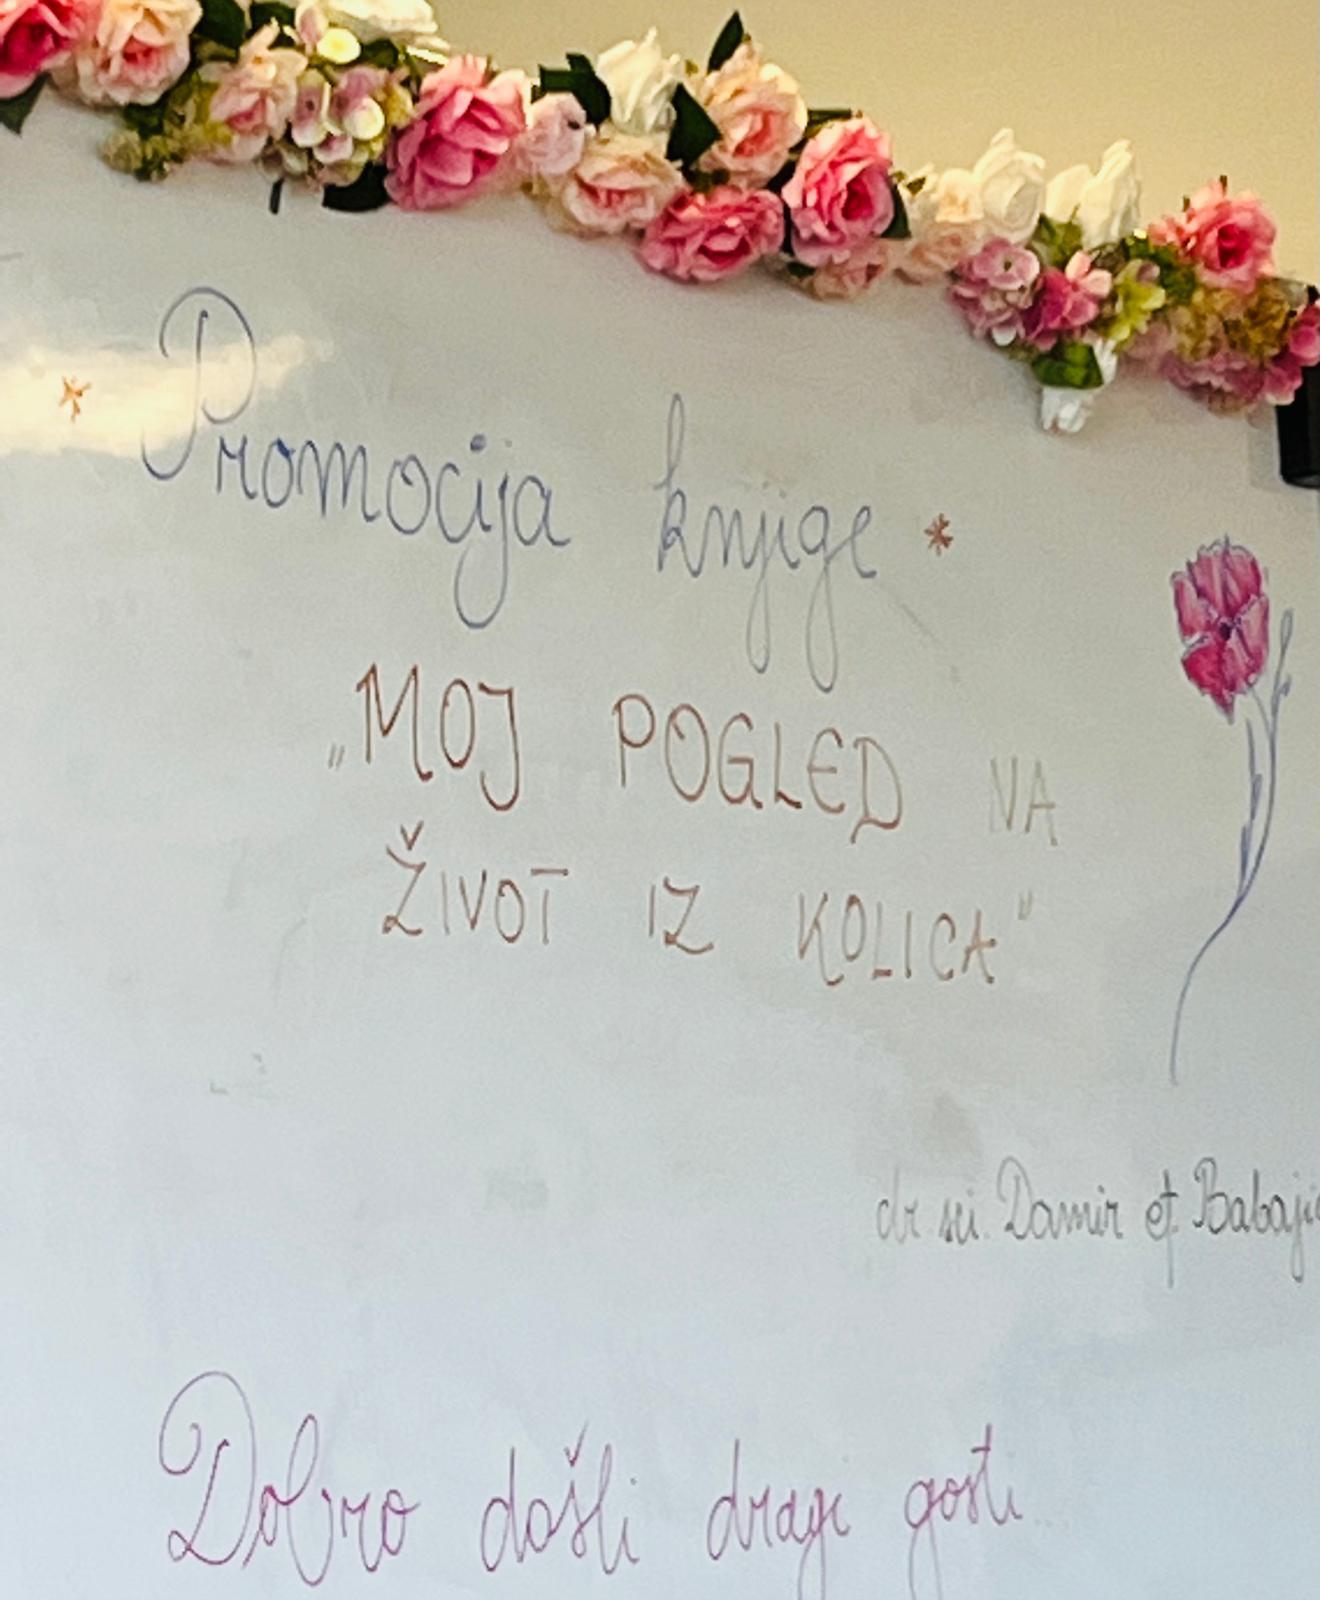 * Promocija knjige *
„MOJ POGLED NA
ŽIVOT IZ KOLICA"
dr sci. Damir ef. Babajić
Dobro došli dragi gosti